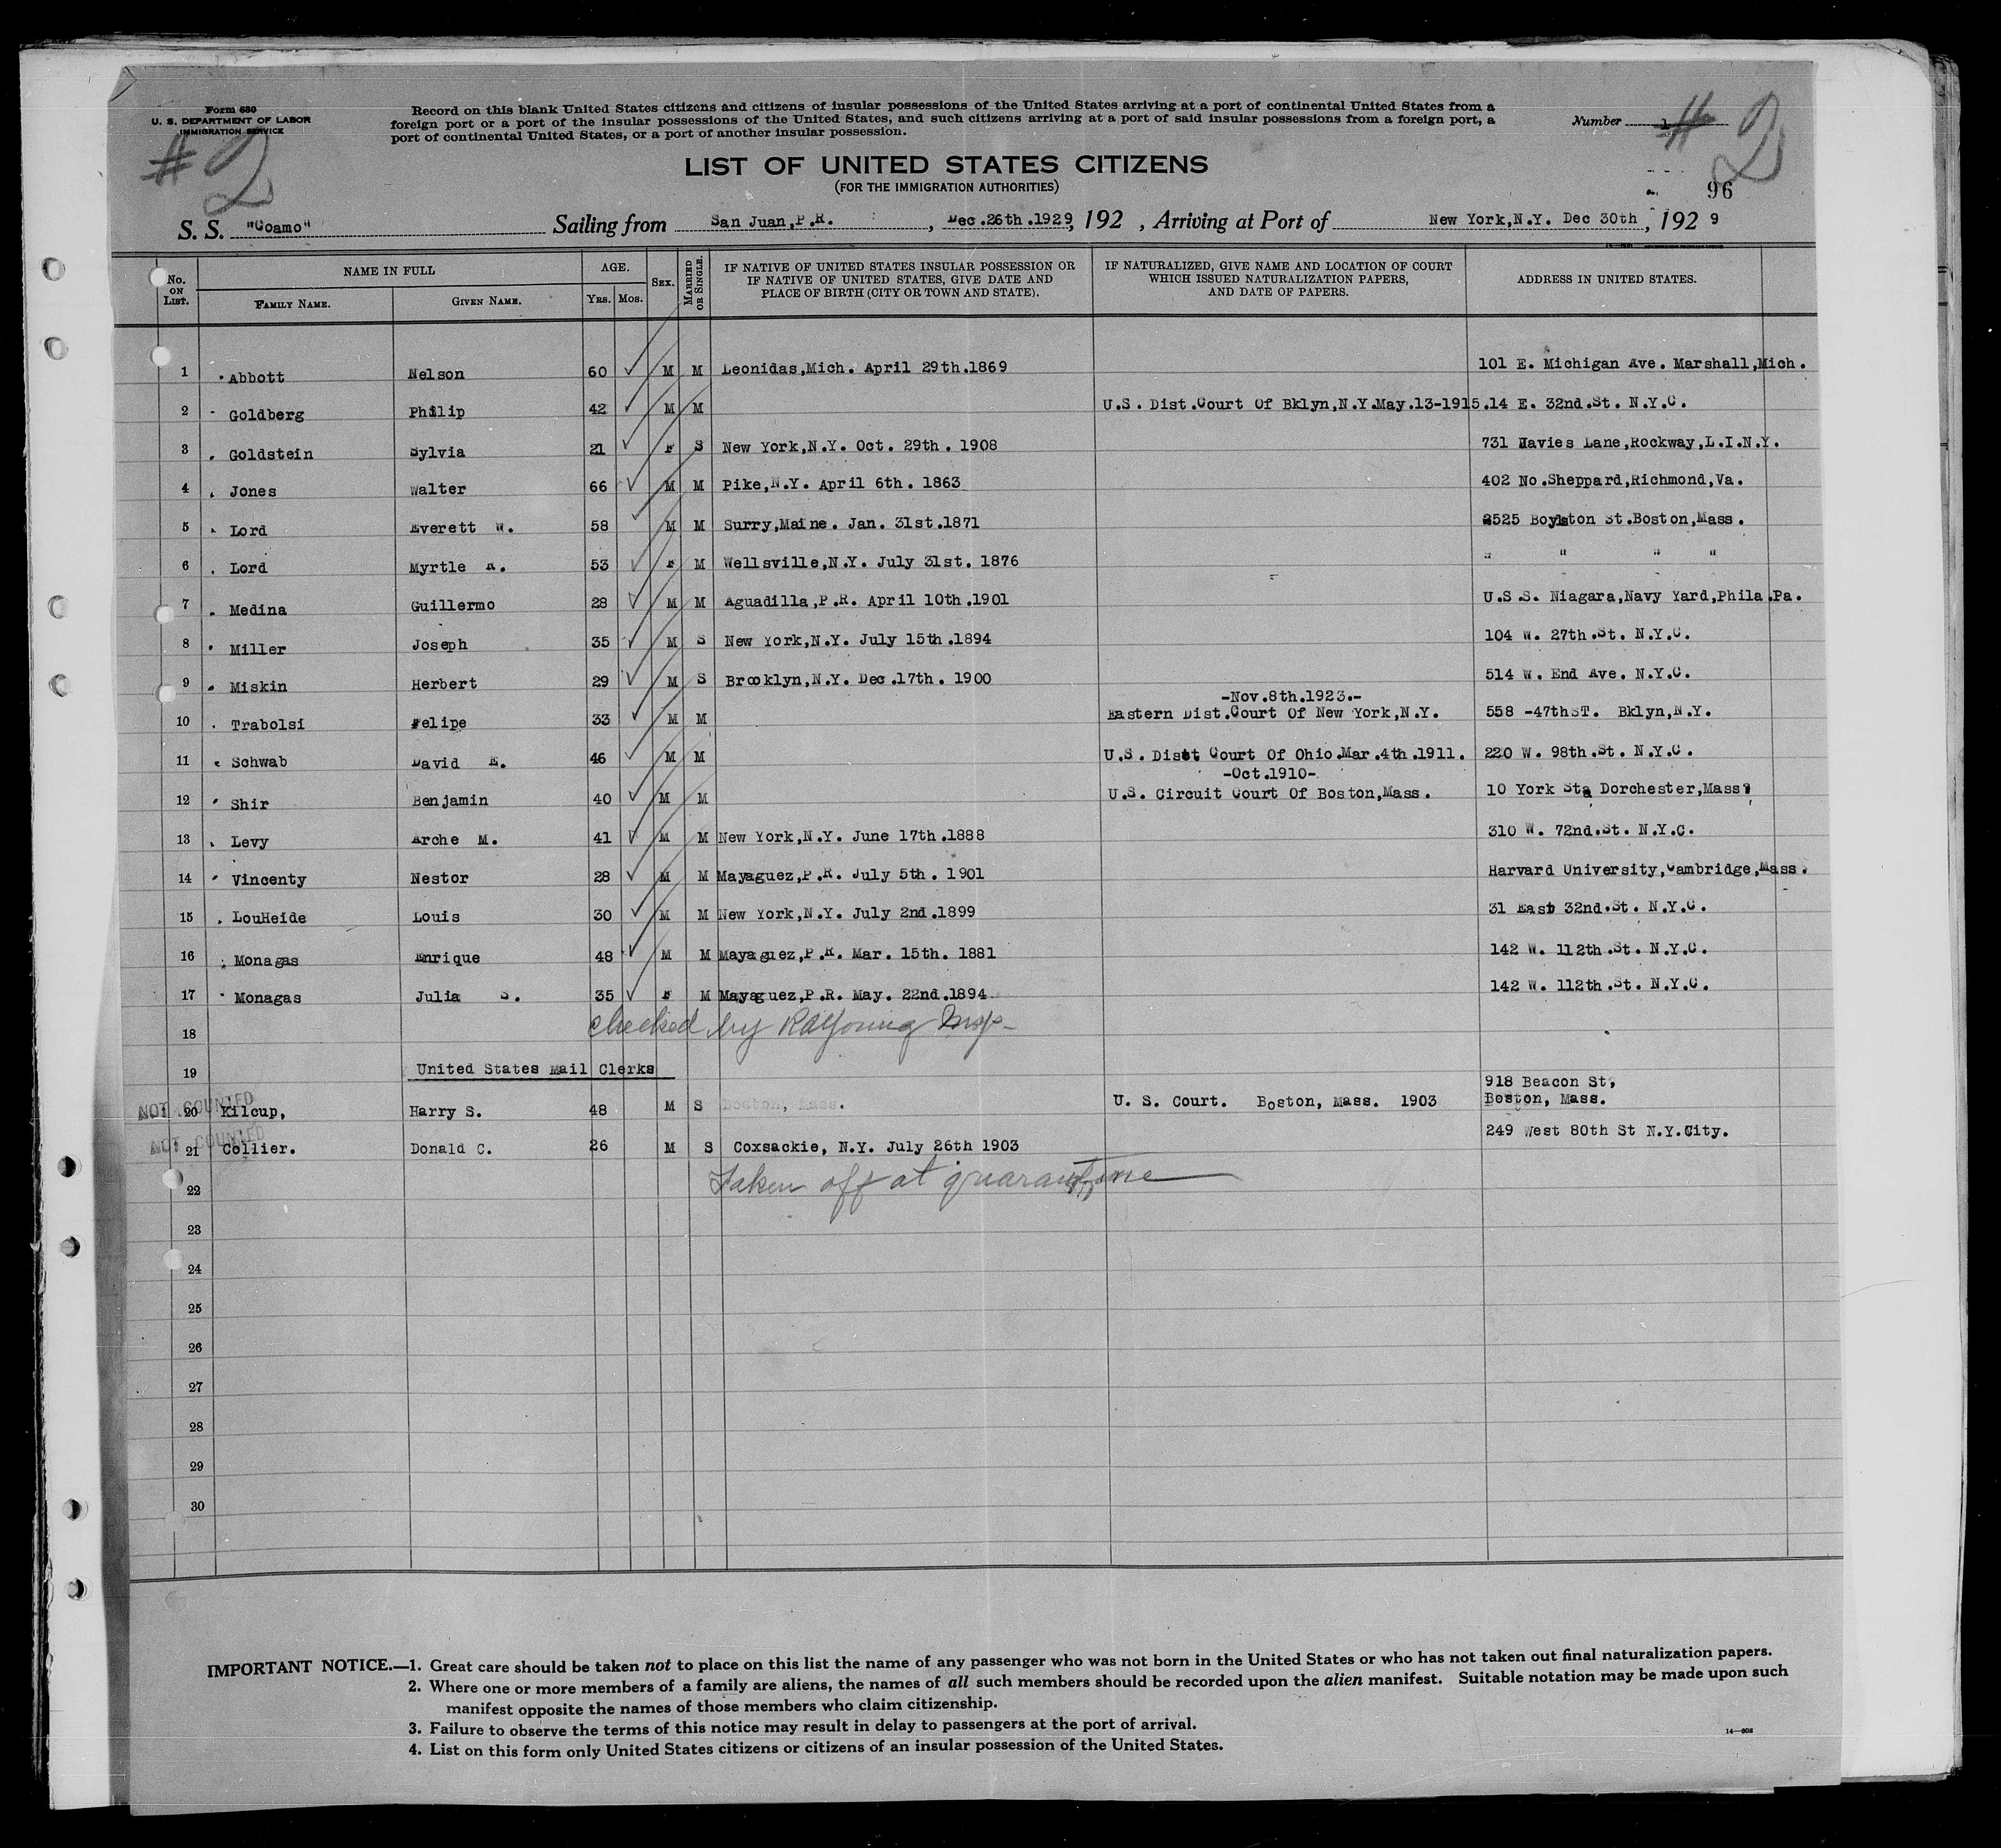 Form 630
U. S. DEPARTMENT OF LABOR
IMMIGRATION SERVICE
Record on this blank United States citizens and citizens of insular possessions of the United States arriving at a port of continental United States from a
foreign port or a port of the insular possessions of the United States, and such citizens arriving at a port of said insular possessions from a foreign port, a
port of continental United States, or a port of another insular possession.
Number 1 # 2
# 2
LIST OF UNITED STATES CITIZENS
(FOR THE IMMIGRATION AUTHORITIES)
96
S. S. "Coamo" Sailing from San Juan,P.R. , Dec.26th.1929, 192 , Arriving at Port of New York,N.Y. Dec 30th , 192 9
No. ON LIST. NAME IN FULL FAMILY NAME. GIVEN NAME. AGE. YRS. MOS. SEX. MARRIED OR SINGLE. IF NATIVE OF UNITED STATES INSULAR POSSESSION OR IF NATIVE OF UNITED STATES, GIVE DATE AND PLACE OF BIRTH (CITY OR TOWN AND STATE). IF NATURALIZED, GIVE NAME AND LOCATION OF COURT WHICH ISSUED NATURALIZATION PAPERS, AND DATE OF PAPERS. ADDRESS IN UNITED STATES.
1 Abbott Nelson 60 M M Leonidas,Mich. April 29th.1869 101 E. Michigan Ave. Marshall,Mich.
2 Goldberg Philip 42 M M U.S. Dist.Court Of Bklyn,N.Y.May.13-1915. 14 E. 32nd.St. N.Y.C.
3 Goldstein Sylvia 21 F S New York,N.Y. Oct. 29th. 1908 731 Davies Lane,Rockway,L.I.N.Y.
4 Jones Walter 66 M M Pike,N.Y. April 6th. 1863 402 No.Sheppard,Richmond,Va.
5 Lord Everett W. 58 M M Surry,Maine. Jan. 31st.1871 2525 Boylston St.Boston,Mass.
6 Lord Myrtle R. 53 F M Wellsville,N.Y. July 31st. 1876 " " " "
7 Medina Guillermo 28 M M Aguadilla,P.R. April 10th.1901 U.S.S. Niagara,Navy Yard,Phila.Pa.
8 Miller Joseph 35 M S New York,N.Y. July 15th.1894 104 W. 27th.St. N.Y.C.
9 Miskin Herbert 29 M S Brooklyn,N.Y. Dec.17th. 1900 514 W. End Ave. N.Y.C.
-Nov.8th.1923.-
10 Trabolsi Felipe 33 M M Eastern Dist.Court Of New York,N.Y. 558 -47thST. Bklyn,N.Y.
11 Schwab David E. 46 M M U.S. Dist Court Of Ohio.Mar.4th.1911. 220 W. 98th.St. N.Y.C.
-Oct.1910-
12 Shir Benjamin 40 M M U.S. Circuit Court Of Boston,Mass. 10 York St. Dorchester,Mass.
13 Levy Arche M. 41 M M New York,N.Y. June 17th.1888 310 W. 72nd.St. N.Y.C.
14 Vincenty Nestor 28 M M Mayaguez,P.R. July 5th. 1901 Harvard University,Cambridge,Mass.
15 LouHeide Louis 30 M M New York,N.Y. July 2nd.1899 31 East 32nd.St. N.Y.C.
16 Monagas Enrique 48 M M Mayaguez,P.R. Mar. 15th. 1881 142 W. 112th.St. N.Y.C.
17 Monagas Julia S. 35 F M Mayaguez,P.R. May. 22nd.1894 142 W. 112th.St. N.Y.C.
18 checked by RAYoung Insp-
19 United States Mail Clerks
918 Beacon St,
NOT COUNTED 20 Kilcup, Harry S. 48 M S Boston, Mass. U. S. Court. Boston, Mass. 1903 Boston, Mass.
NOT COUNTED 21 Collier. Donald C. 26 M S Coxsackie, N.Y. July 26th 1903 249 West 80th St N.Y.City.
22 Taken off at quarantine
23
24
25
26
27
28
29
30
IMPORTANT NOTICE.—1. Great care should be taken not to place on this list the name of any passenger who was not born in the United States or who has not taken out final naturalization papers.
2. Where one or more members of a family are aliens, the names of all such members should be recorded upon the alien manifest. Suitable notation may be made upon such
manifest opposite the names of those members who claim citizenship.
3. Failure to observe the terms of this notice may result in delay to passengers at the port of arrival.
4. List on this form only United States citizens or citizens of an insular possession of the United States.
14—608